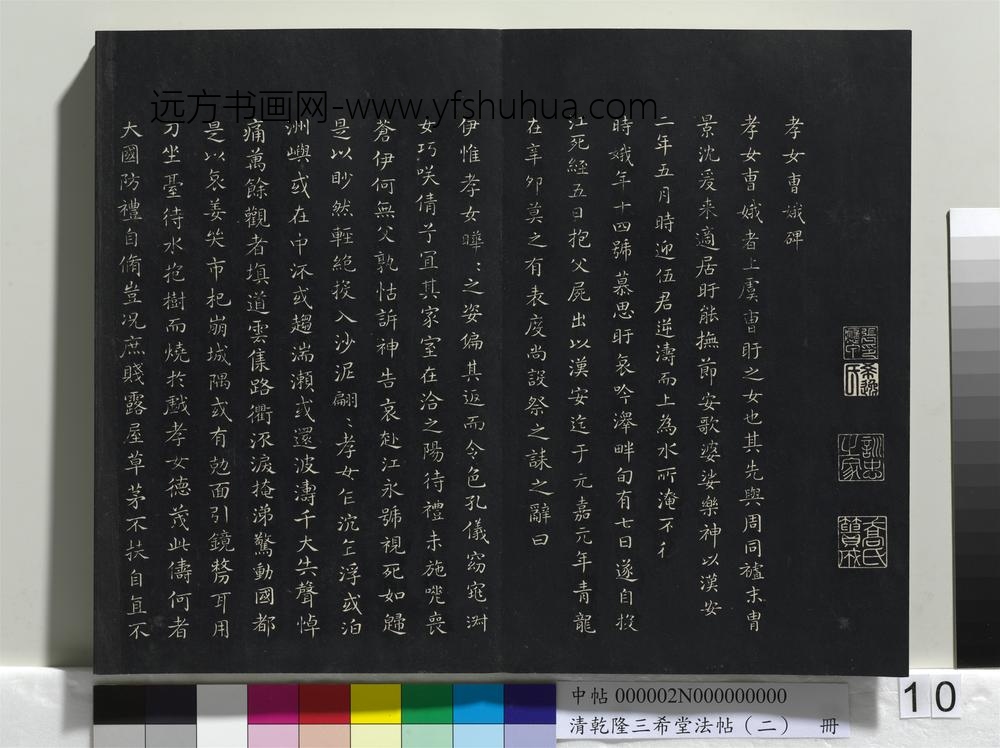 远方书画网-www.yfshuhua.com
孝女曹娥碑
孝女曹娥者上虞曹盱之女也其先與周同祖末胄
景沈爰来適居盱能撫節安歌婆娑樂神以漢安
二年五月時迎伍君逆濤而上為水所淹不得
時娥年十四號慕思盱哀吟澤畔旬有七日遂自投
江死經五日抱父屍出以漢安迄于元嘉元年青龍
在辛卯莫之有表度尚設祭之誄之辭曰
伊惟孝女曄〻之姿偏其返而令色孔儀窈窕淑
女巧咲倩兮宜其家室在洽之陽待禮未施嗟喪
蒼伊何無父孰怙訴神告哀赴江永號視死如歸
是以眇然輕絶投入沙泥翩〻孝女乍沉乍浮或泊
洲嶼或在中流或趨湍瀨或還波濤千夫失聲悼
痛萬餘觀者填道雲集路衢流淚掩涕驚動國都
是以哀姜哭市杞崩城隅或有剋面引鏡剺耳用
刀坐臺待水抱樹而燒扵戯孝女德茂此儔何者
大國防禮自脩豈况庶賤露屋草茅不扶自直不
高氏
訓忠之家
中帖 000002N000000000
清乾隆三希堂法帖（二） 冊
10